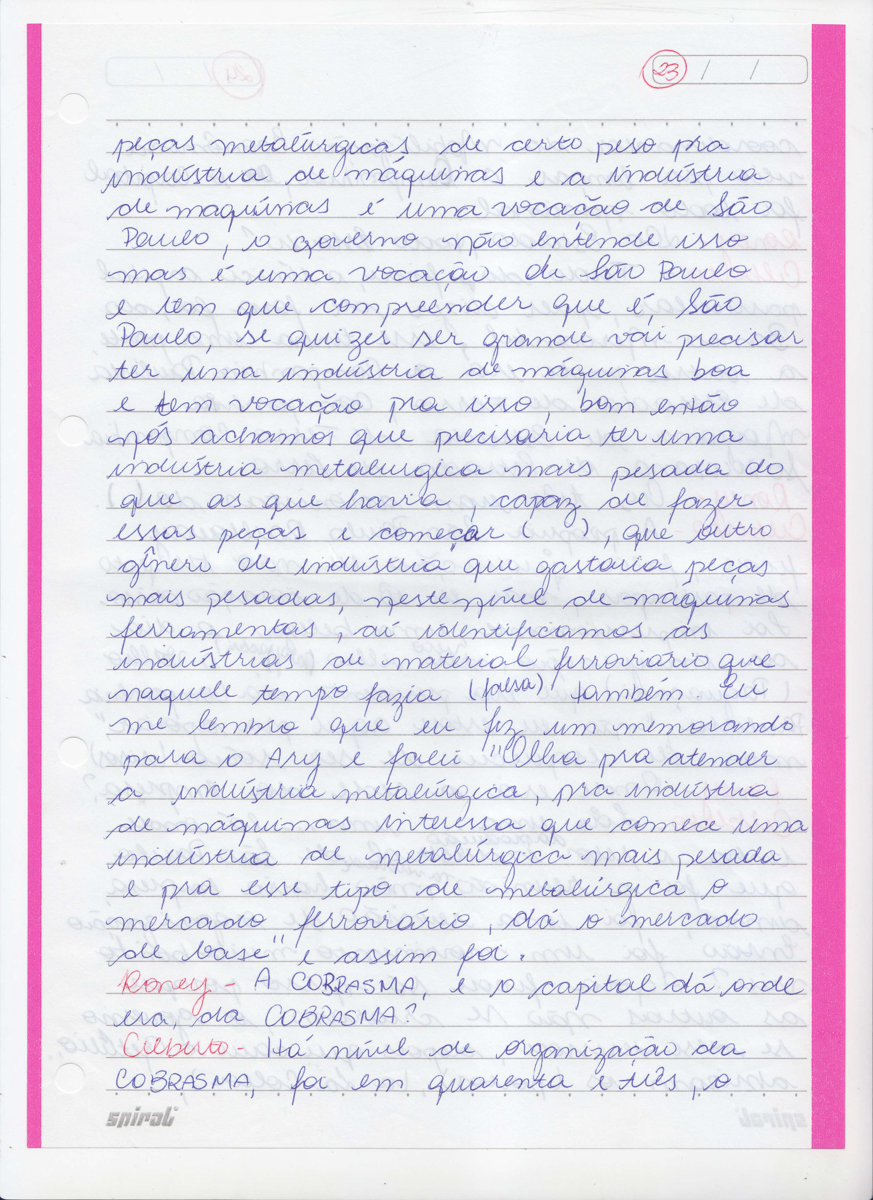 23 / /
peças metalúrgicas de certo peso pra
indústria de máquinas e a indústria
de maquínas é uma vocação de São
Paulo, o governo não entende isso
mas é uma vocação de São Paulo
e tem que compreender que é, São
Paulo, se quizer ser grande vai precisar
ter uma indústria de máquinas boa
e tem vocação pra isso, bom então
nós achamos que precisaria ter uma
indústria metalurgica mais pesada do
que as que havia, capaz de fazer
essas peças e começar ( ), que outro
gênero de indústria que gastaria peças
mais pesadas, neste nível de máquinas
ferramentas, aí identificamos as
indústrias de material ferroviário que
naquele tempo fazia (falsa) também. Eu
me lembro que eu fiz um memorando
para o Ary e falei "Olha pra atender
a indústria metalúrgica, pra indústria
de máquinas interessa que comece uma
indústria de metalúrgica mais pesada
e pra esse tipo de metalúrgica o
mercado ferroviário, dá o mercado
de base" e assim foi.
Roney - A COBRASMA, e o capital dá onde
era, da COBRASMA?
Gilberto - Há nível de organização da
COBRASMA, foi em quarenta e três, o
spiral